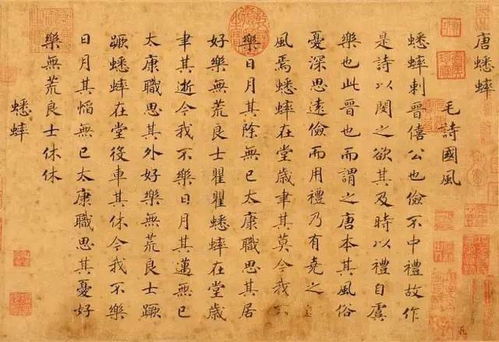 唐蟋蟀
毛詩國風
蟋蟀刺晉僖公也儉不中禮故作
是詩以閔之欲其及時以禮自虞
樂也此晉也而謂之唐本其風俗
憂深思遠儉而用禮乃有堯之
風焉蟋蟀在堂歲聿其莫今我不
樂日月其除無已太康職思其居
好樂無荒良士瞿瞿蟋蟀在堂歲
聿其逝今我不樂日月其邁無已
太康職思其外好樂無荒良士蹶
蹶蟋蟀在堂役車其休今我不樂
日月其慆無已太康職思其憂好
樂無荒良士休休
蟋蟀